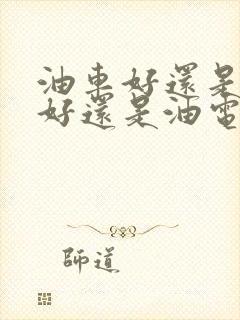 油車好還是
好還是油電
師道